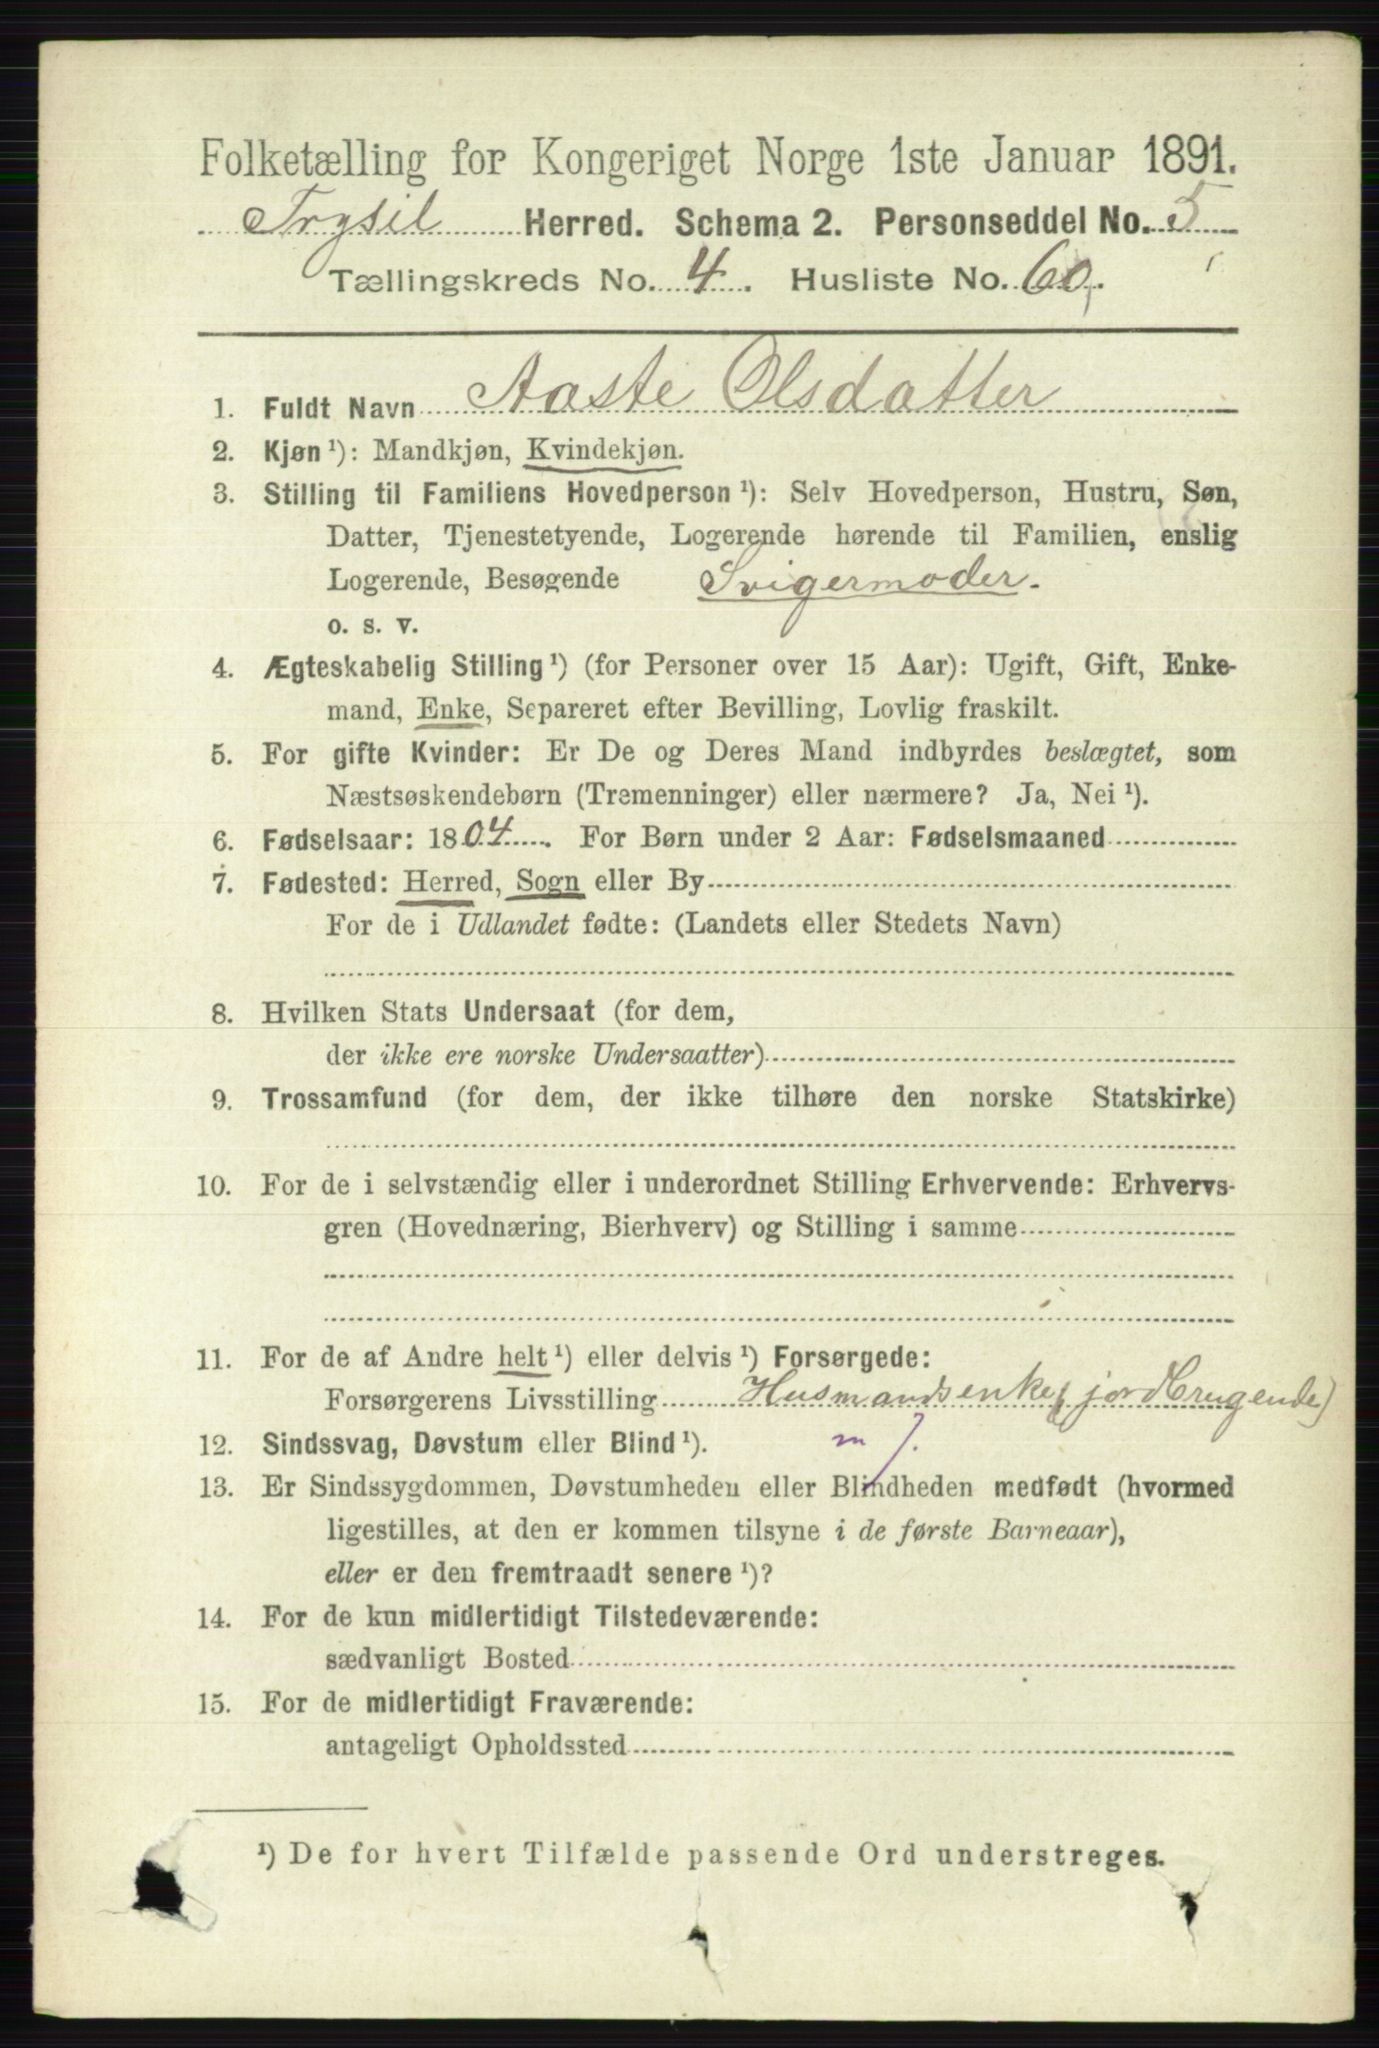 Folketælling for Kongeriget Norge 1ste Januar 1891.
Trysil Herred. Schema 2. Personseddel No. 5
Tællingskreds No. 4. Husliste No. 60.
1. Fuldt Navn Aaste Olsdatter
2. Kjøn ¹): Mandkjøn, Kvindekjøn.
3. Stilling til Familiens Hovedperson ¹): Selv Hovedperson, Hustru, Søn,
Datter, Tjenestetyende, Logerende hørende til Familien, enslig
Logerende, Besøgende Svigermoder.
o. s. v.
4. Ægteskabelig Stilling ¹) (for Personer over 15 Aar): Ugift, Gift, Enke-
mand, Enke, Separeret efter Bevilling, Lovlig fraskilt.
5. For gifte Kvinder: Er De og Deres Mand indbyrdes beslægtet, som
Næstsøskendebørn (Tremenninger) eller nærmere? Ja, Nei ¹).
6. Fødselsaar: 1804. For Børn under 2 Aar: Fødselsmaaned
7. Fødested: Herred, Sogn eller By
For de i Udlandet fødte: (Landets eller Stedets Navn)
8. Hvilken Stats Undersaat (for dem,
der ikke ere norske Undersaatter)
9. Trossamfund (for dem, der ikke tilhøre den norske Statskirke)
10. For de i selvstændig eller i underordnet Stilling Erhvervende: Erhvervs-
gren (Hovednæring, Bierhverv) og Stilling i samme
11. For de af Andre helt ¹) eller delvis ¹) Forsørgede:
Forsørgerens Livsstilling Husmandsenke (jordbrugende)
12. Sindssvag, Døvstum eller Blind ¹). m j.
13. Er Sindssygdommen, Døvstumheden eller Blindheden medfødt (hvormed
ligestilles, at den er kommen tilsyne i de første Barneaar),
eller er den fremtraadt senere ¹)?
14. For de kun midlertidigt Tilstedeværende:
sædvanligt Bosted
15. For de midlertidigt Fraværende:
antageligt Opholdssted
¹) De for hvert Tilfælde passende Ord understreges.